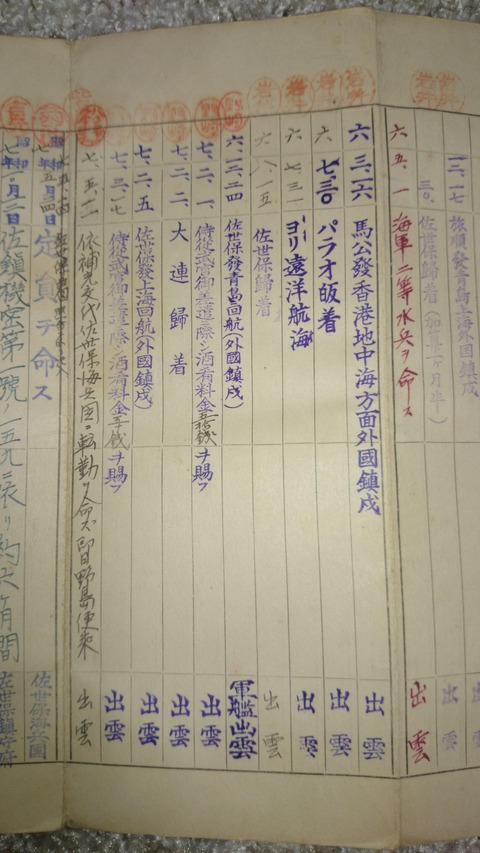 一二、一七 旅順發青島上海外國鎮戍 出雲
三〇、 佐世保歸着(加算一ヶ月半) 出雲
六、五、一 海軍二等水兵ヲ命ス 出雲
六、三、二六 馬公發香港地中海方面外國鎮戍 出雲
六、七、三〇 パラオ皈着 出雲
六、七、三一 ヨリ遠洋航海 出雲
六、八、一五 佐世保歸着 出雲
六、一二、二四 佐世保發青島回航(外國鎮戍) 軍艦出雲
七、二、一 侍從武官御差遣ノ際シ酒肴料金五拾錢ヲ賜フ 出雲
七、二、二 大連歸着 出雲
七、二、五 佐世保發上海回航(外國鎮戍) 出雲
七、三、一七 侍從武官御差遣ノ際シ酒肴料金錢ヲ賜フ 出雲
七、五、二 依補充交代佐世保海兵團ニ転勤ヲ命ズ即日野島便乘 出雲
昭和七年五月 日 定員ヲ命ス 佐世保海兵團
昭和七年 月 日 佐鎮機密第一號ノ一五九ニ依リ約六ヶ月間 佐世保鎮守府